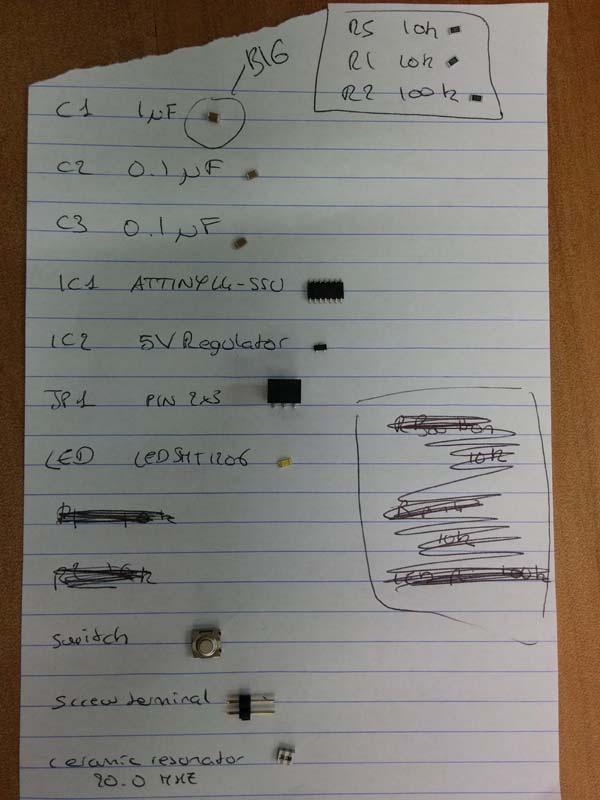 R5 10k
R1 10k
R2 100k
BIG
C1 1µF
C2 0.1µF
C3 0.1µF
IC1 ATTINY44-SSU
IC2 5V Regulator
JP1 PIN 2x3
LED LEDSMT1206
10k
10k
100k
switch
screw terminal
ceramic resonator
20.0 MHZ